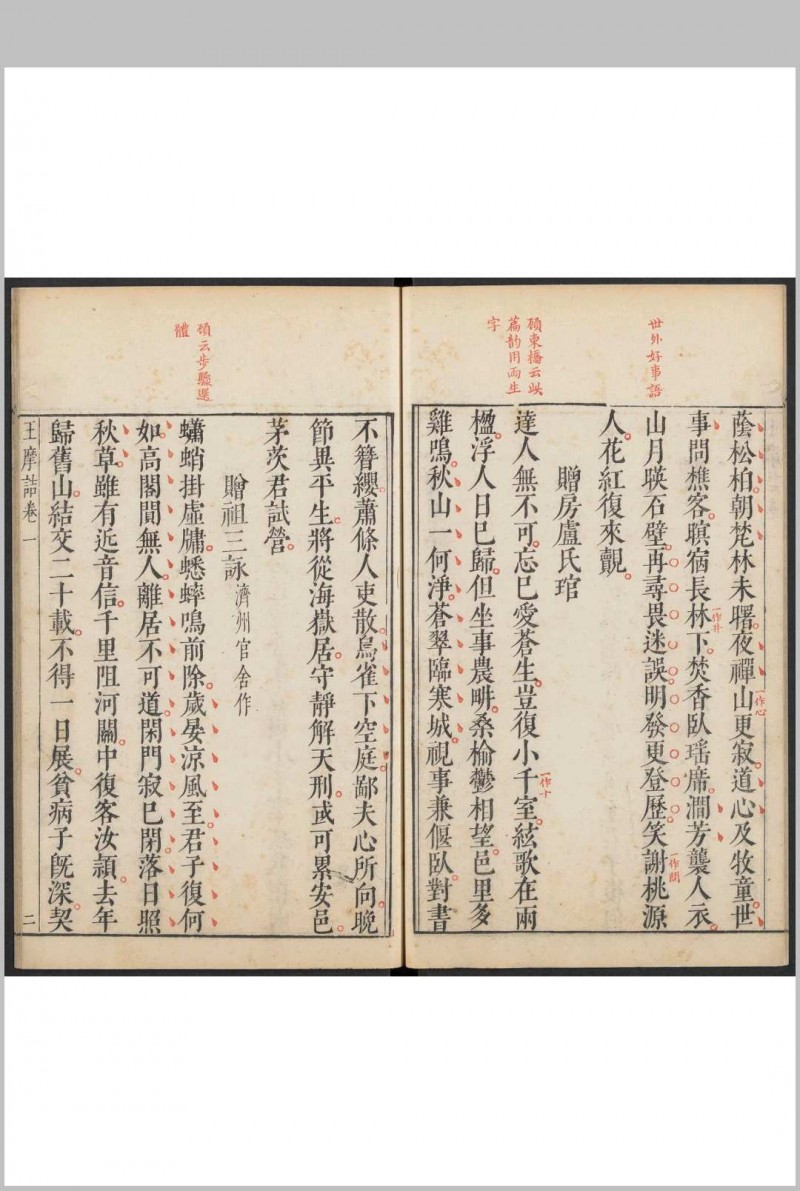 世外好事語
蔭松柏朝梵林未曙夜禪山更寂道心及牧童世
一作心
事問樵客暝宿長林下焚香臥瑤席澗芳襲人衣
一作井
山月暎石壁再尋畏迷誤明發更登歷笑謝桃源
一作聞
人花紅復來覿
贈房盧氏琯
顧東橋云此
篇韵用兩生
字
達人無不可忘巳愛蒼生豈復小千室絃歌在兩
一作十
楹浮人日巳歸但坐事農畊桑榆鬱相望邑里多
雞鳴秋山一何淨蒼翠臨寒城視事兼偃臥對書
不簪纓蕭條人吏散鳥雀下空庭鄙夫心所向晚
節異平生將從海嶽居守靜解天刑或可累安邑
茅茨君試營
贈祖三詠濟州官舍作
顧云步驟選
體
蠨蛸掛虛牖蟋蟀鳴前除歲晏涼風至君子復何
如高閣閴無人離居不可道閑門寂巳閉落日照
秋草雖有近音信千里阻河關中復客汝潁去年
歸舊山結交二十載不得一日展貧病子旣深契
王摩詰卷一 二